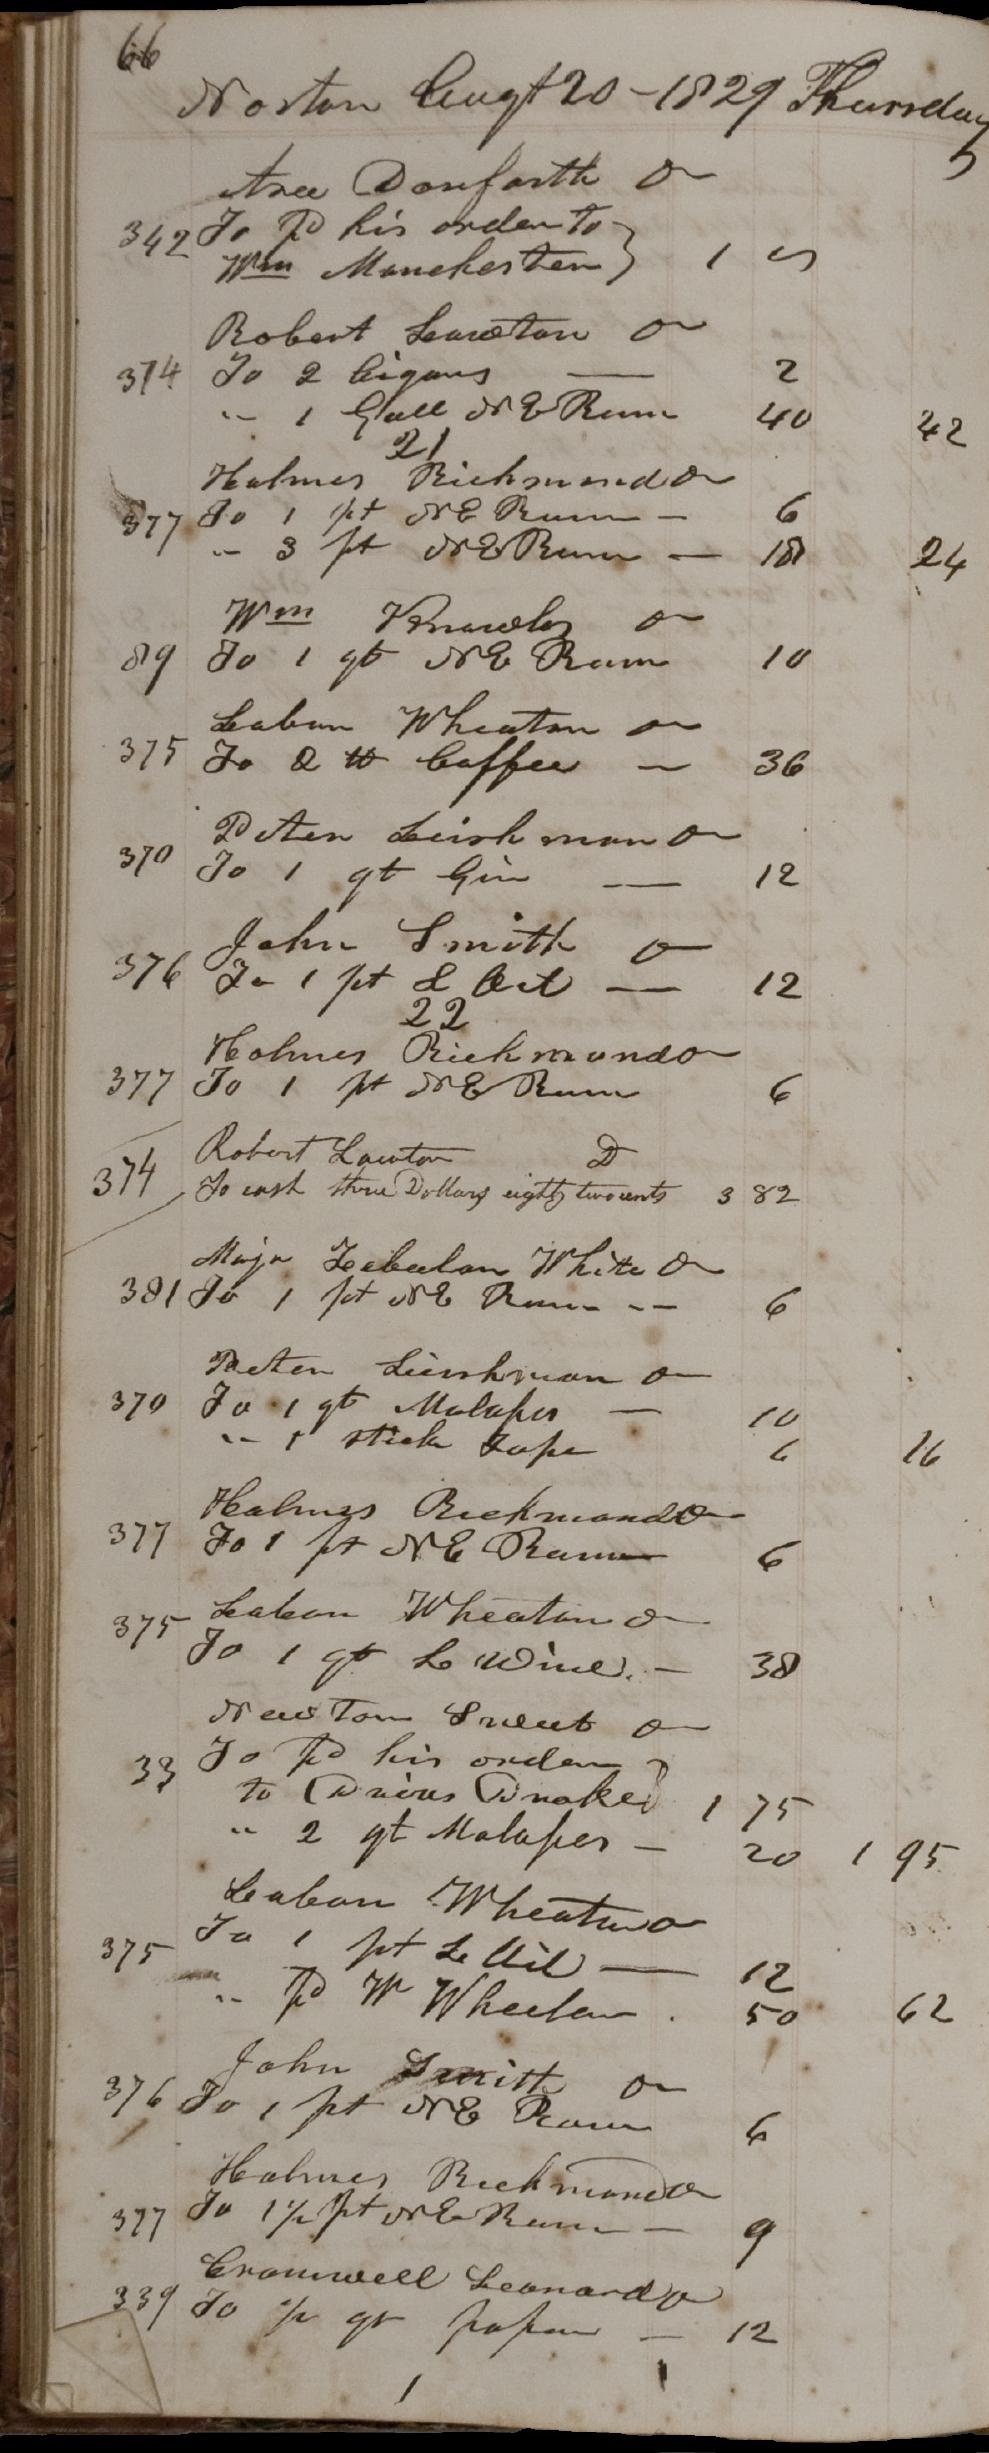 66
Norton Augt 20 - 1829 Thursday
Asa Danforth Dr
342 To Pd his order to
Wm Manchester 1
Robert Lawton Dr
374 To 2 Cigars — 2
" 1 Gall NE Rum 40 42
21
Holmes Richmond Dr
377 To 1 pt NE Rum - 6
" 3 pt NE Rum — 18 24
Wm Knowles Dr
89 To 1 qt NE Rum 10
Laban Wheaton Dr
375 To 2 lb Coffee — 36
Peter Leishman Dr
370 To 1 qt Gin — 12
John Smith Dr
376 To 1 pt L Oil — 12
22
Holmes Richmond Dr
377 To 1 pt NE Rum 6
Robert Lawton D
374 To cash three Dollars eighty two cents 3 82
Majr Zebulon White Dr
381 To 1 pt NE Rum -- 6
Peter Leishman Dr
370 To 1 qt Molasses — 10
" 1 stick Tape 6 16
Holmes Richmond Dr
377 To 1 pt NE Rum 6
Laban Wheaton Dr
375 To 1 qt L Wine. - 38
Newton Sweet Dr
33 To Pd his order
to Drake 1 75
" 2 qt Molasses — 20 1 95
Laban Wheaton Dr
375 To 1 pt L Oil — 12
" Pd W Wheelan 50 62
John Smith Dr
376 To 1 pt NE Rum 6
Holmes Richmond Dr
377 To 1 1/2 Pt NE Rum — 9
Cromwell Leonard Dr
339 To 1/2 qr paper — 12